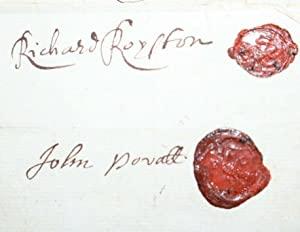 Richard Royston
John Povall